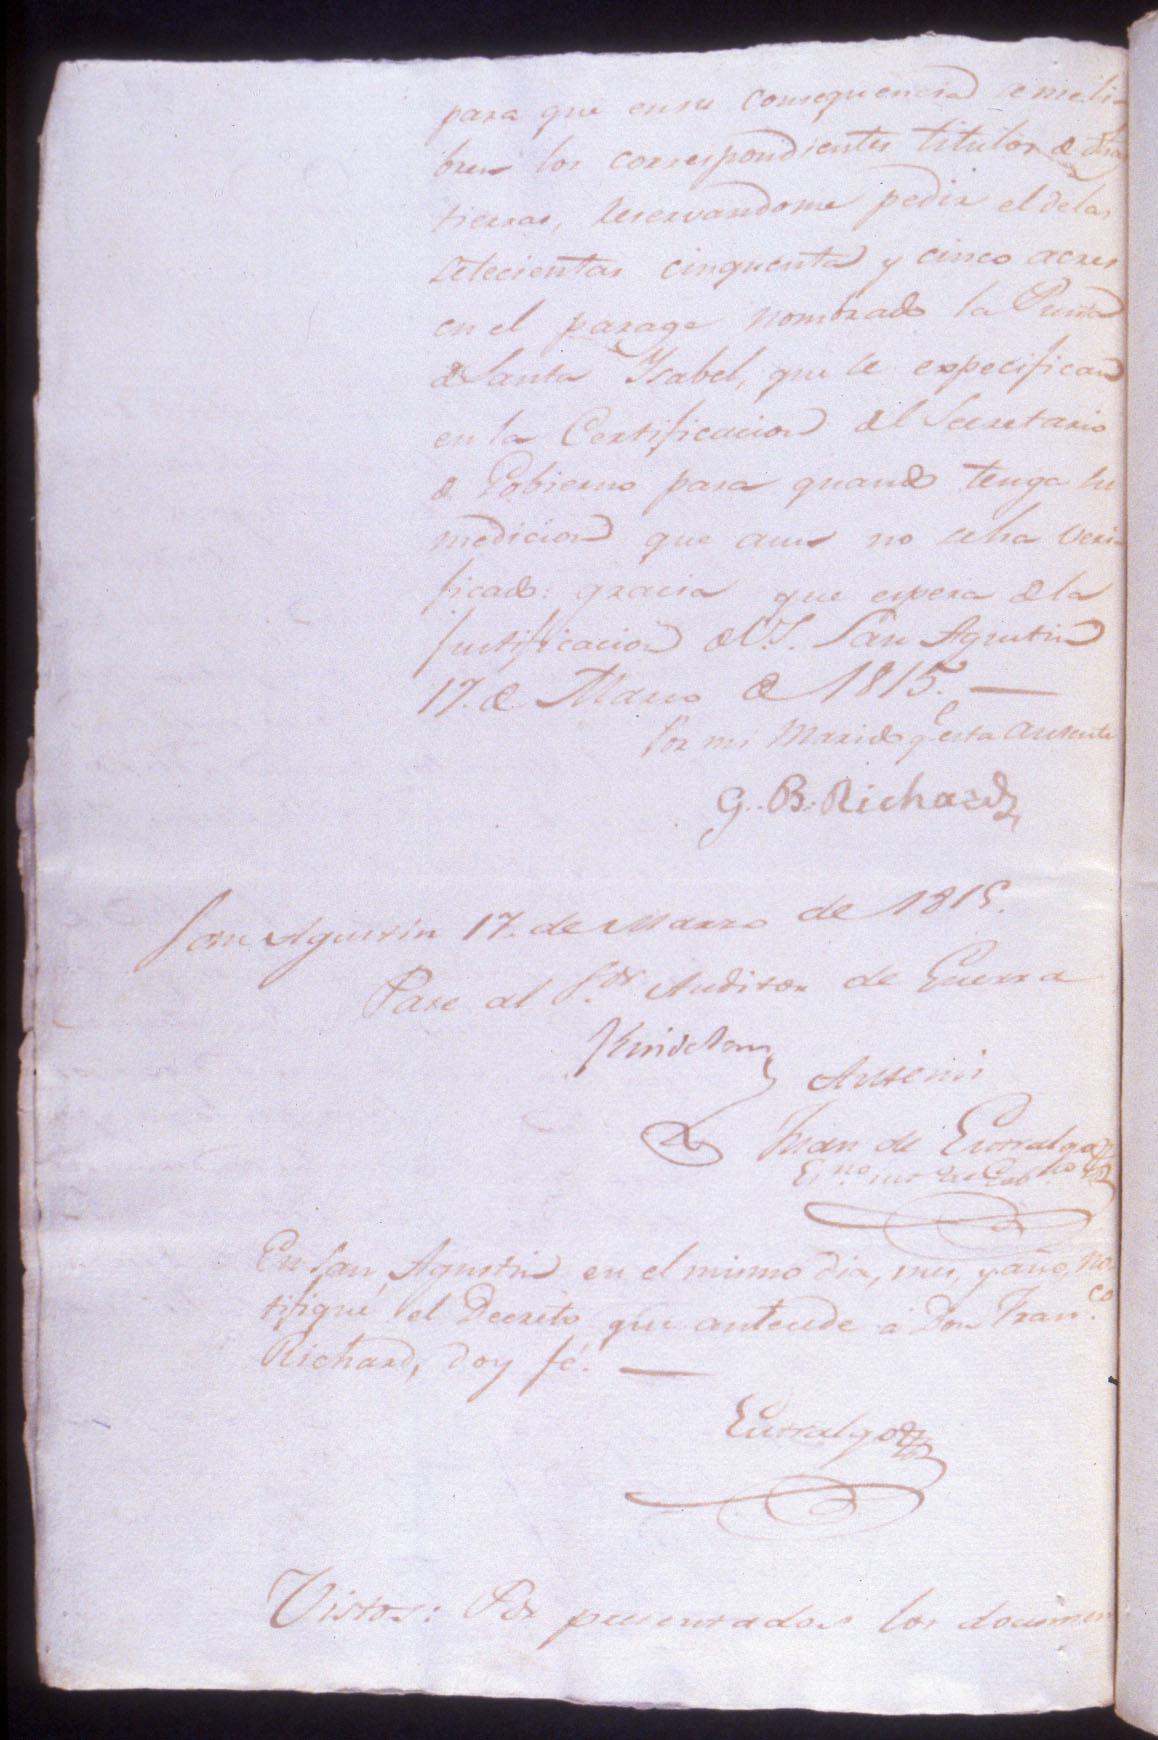 para que en su consequencia se me li-
bren los correspondientes titulos de dhas
tierras, reservandome pedir el de las
setecientas cinquenta y cinco acres
en el parage nombrado la Punta
de Santa Ysabel, que se expecifican
en la Certificacion del Secretario
de Gobierno para quando tenga su
medicion que aun no seha veri-
ficado: gracia que espera de la
justificacion de V.S. San Agustin
17. de Marzo de 1815. —
Por mi Marido qe esta ausente
G. B. Richard
San Agustin 17. de Marzo de 1815.
Pase al Sor. Auditor de Guerra
Kindelan
Antemi
Juan de Entralgo
Esno. de Gobno.
En San Agustin en el mismo dia, mes, y año, no-
tifiqué el Decreto que antecede a Don Franco.
Richard, doy fé. —
Entralgo
Vistos: Por presentados los documen